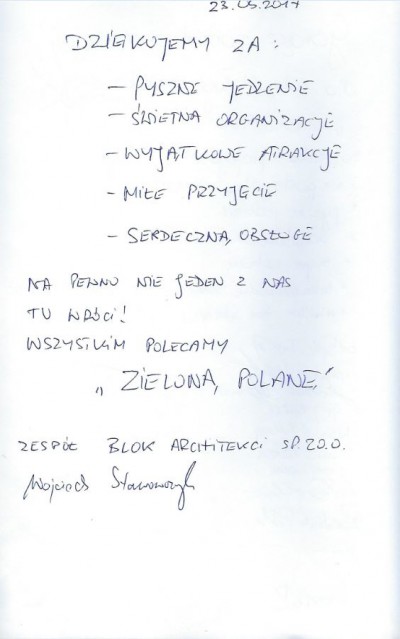 23.05.2017
DZIĘKUJEMY ZA:
- PYSZNE JEDZENIE
- ŚWIETNĄ ORGANIZACJĘ
- WYJĄTKOWE ATRAKCJE
- MIŁE PRZYJĘCIE
- SERDECZNĄ OBSŁUGĘ
NA PEWNO NIE JEDEN Z NAS
TU WRÓCI!
WSZYSTKIM POLECAMY
„ZIELONĄ POLANĘ"
ZESPÓŁ BLOK ARCHITEKCI SP. Z O.O.
Wojciech